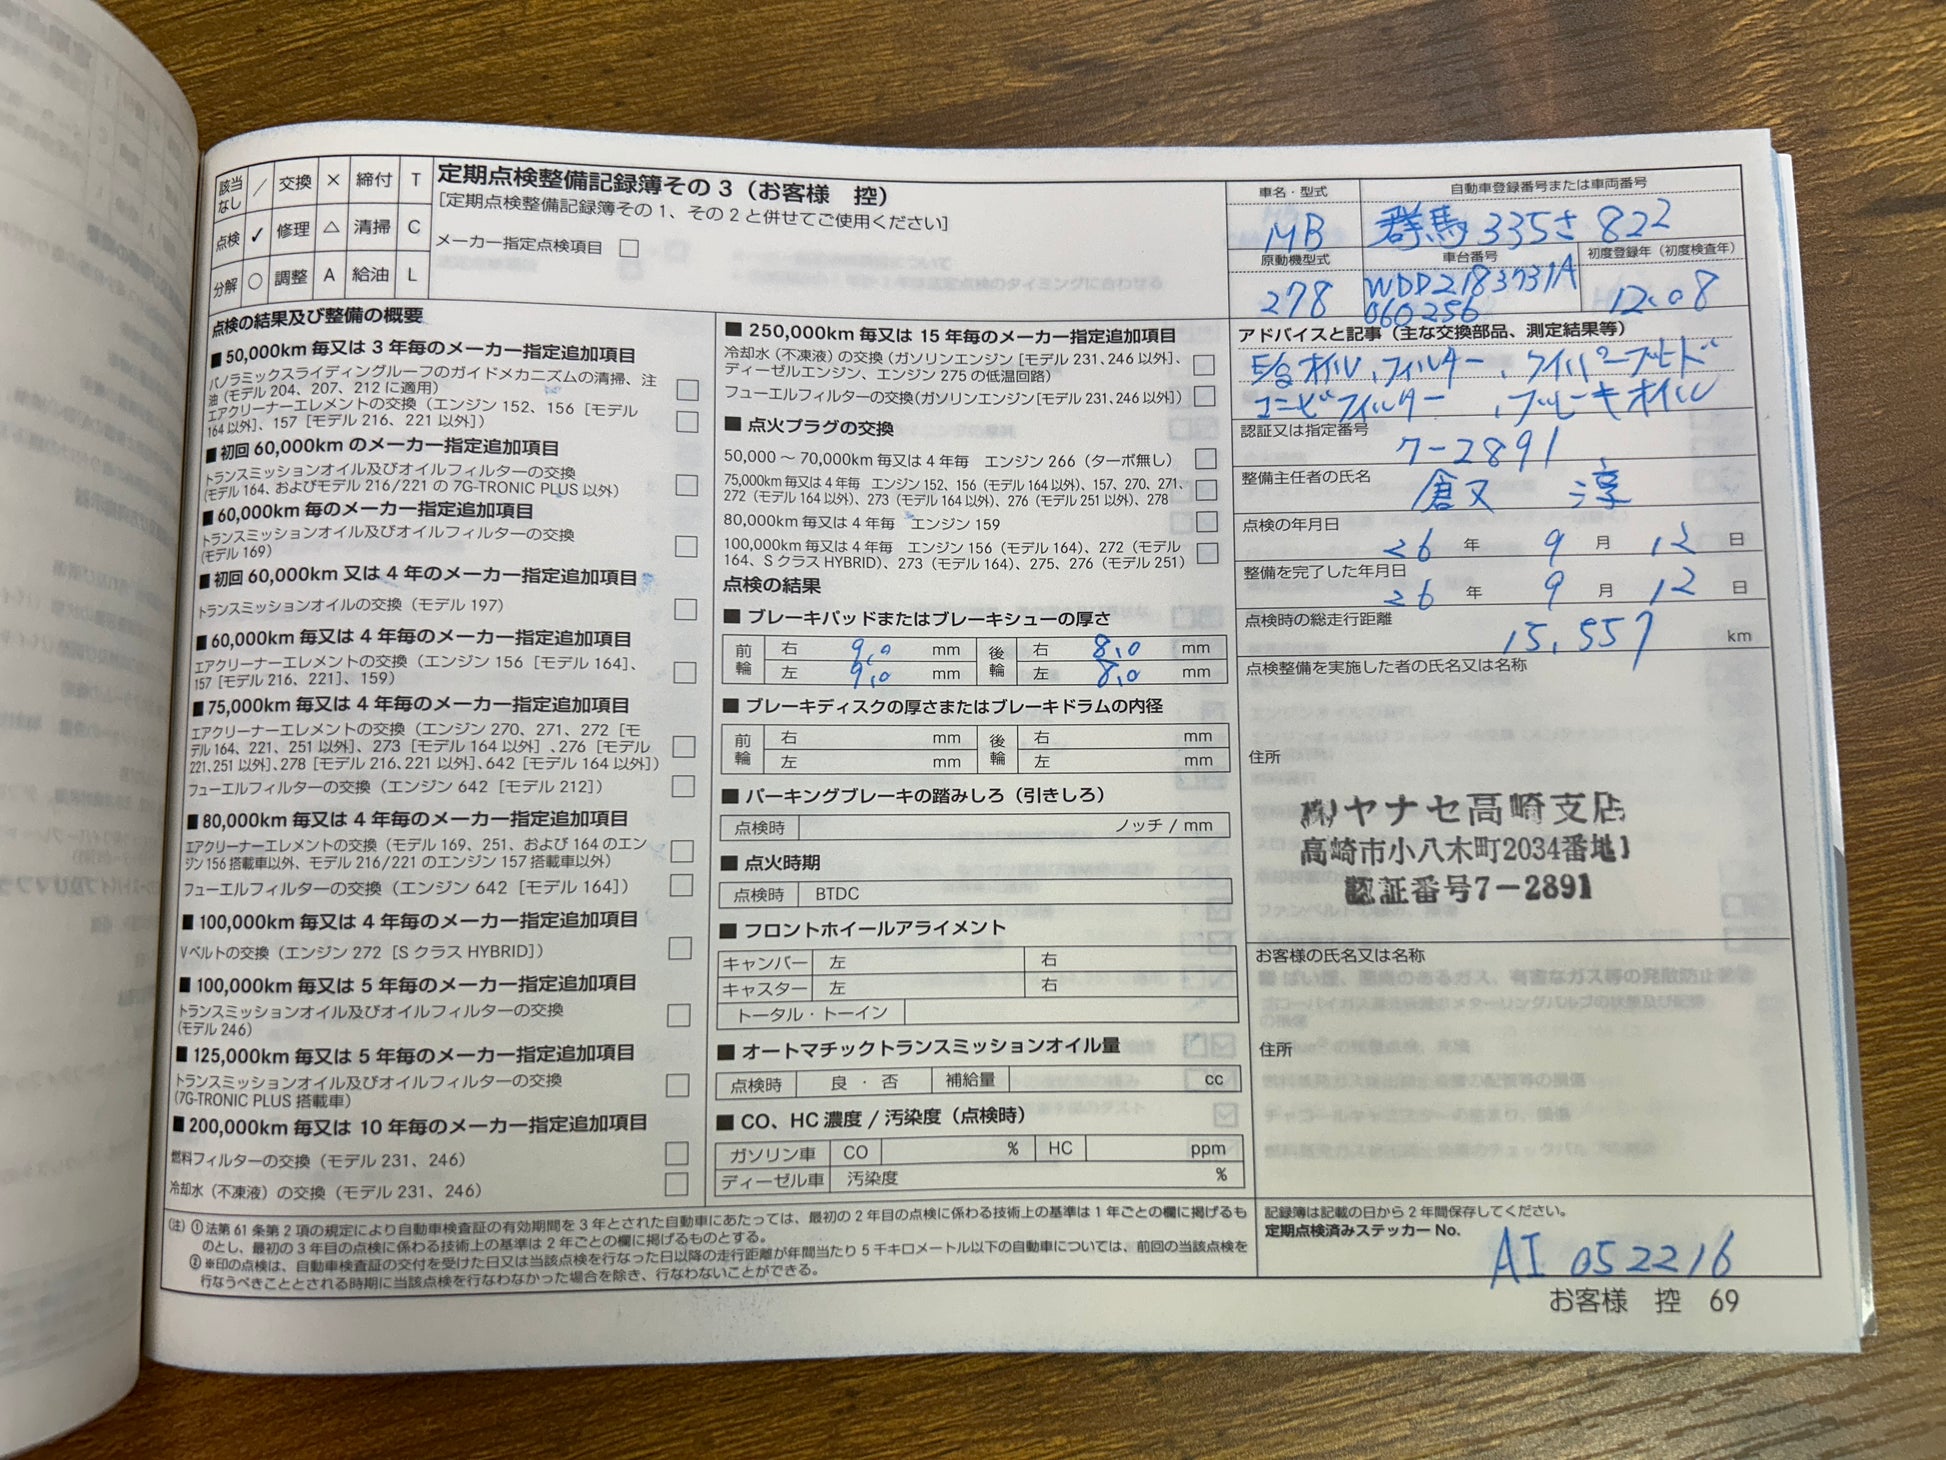 該当なし ／ 交換 × 締付 T
点検 ✓ 修理 △ 清掃 C
分解 ○ 調整 A 給油 L
定期点検整備記録簿その3（お客様 控）
［定期点検整備記録簿その1、その2と併せてご使用ください］
メーカー指定点検項目 □
点検の結果及び整備の概要
■50,000km 毎又は 3 年毎のメーカー指定追加項目
パノラミックスライディングルーフのガイドメカニズムの清掃、注
油（モデル 204、207、212 に適用）
エアクリーナーエレメントの交換（エンジン 152、156［モデル
164以外］、157［モデル 216、221 以外］）
■初回 60,000km のメーカー指定追加項目
トランスミッションオイル及びオイルフィルターの交換
（モデル 164、およびモデル 216/221 の 7G-TRONIC PLUS 以外）
■60,000km 毎のメーカー指定追加項目
トランスミッションオイル及びオイルフィルターの交換
（モデル 169）
■初回 60,000km 又は 4 年のメーカー指定追加項目
トランスミッションオイルの交換（モデル 197）
■60,000km 毎又は 4 年毎のメーカー指定追加項目
エアクリーナーエレメントの交換（エンジン 156［モデル 164］、
157［モデル 216、221］、159）
■75,000km 毎又は 4 年毎のメーカー指定追加項目
エアクリーナーエレメントの交換（エンジン 270、271、272［モ
デル 164、221、251 以外］、273［モデル 164 以外］、276［モデル
221、251 以外］、278［モデル 216、221 以外］、642［モデル 164 以外］）
フューエルフィルターの交換（エンジン 642［モデル 212］）
■80,000km 毎又は 4 年毎のメーカー指定追加項目
エアクリーナーエレメントの交換（モデル 169、251、および 164 のエン
ジン 156 搭載車以外、モデル 216/221 のエンジン 157 搭載車以外）
フューエルフィルターの交換（エンジン 642［モデル 164］）
■100,000km 毎又は 4 年毎のメーカー指定追加項目
Vベルトの交換（エンジン 272［S クラス HYBRID］）
■100,000km 毎又は 5 年毎のメーカー指定追加項目
トランスミッションオイル及びオイルフィルターの交換
（モデル 246）
■125,000km 毎又は 5 年毎のメーカー指定追加項目
トランスミッションオイル及びオイルフィルターの交換
（7G-TRONIC PLUS 搭載車）
■200,000km 毎又は 10 年毎のメーカー指定追加項目
燃料フィルターの交換（モデル 231、246）
冷却水（不凍液）の交換（モデル 231、246）
■250,000km 毎又は 15 年毎のメーカー指定追加項目
冷却水（不凍液）の交換（ガソリンエンジン［モデル 231、246 以外］、
ディーゼルエンジン、エンジン 275 の低温回路）
フューエルフィルターの交換（ガソリンエンジン［モデル 231、246 以外］）
■点火プラグの交換
50,000 ～ 70,000km 毎又は 4 年毎 エンジン 266（ターボ無し）
75,000km 毎又は 4 年毎 エンジン 152、156（モデル 164 以外）、157、270、271、
272（モデル 164 以外）、273（モデル 164 以外）、276（モデル 251 以外）、278
80,000km 毎又は 4 年毎 エンジン 159
100,000km 毎又は 4 年毎 エンジン 156（モデル 164）、272（モデル
164、S クラス HYBRID）、273（モデル 164）、275、276（モデル 251）
点検の結果
■ブレーキパッドまたはブレーキシューの厚さ
前輪 右 9.0 mm 後輪 右 8.0 mm
左 9.0 mm 左 8.0 mm
■ブレーキディスクの厚さまたはブレーキドラムの内径
前輪 右 mm 後輪 右 mm
左 mm 左 mm
■パーキングブレーキの踏みしろ（引きしろ）
点検時 ノッチ / mm
■点火時期
点検時 BTDC
■フロントホイールアライメント
キャンバー 左 右
キャスター 左 右
トータル・トーイン
■オートマチックトランスミッションオイル量
点検時 良・否 補給量 cc
■CO、HC 濃度 / 汚染度（点検時）
ガソリン車 CO % HC ppm
ディーゼル車 汚染度 %
車名・型式 自動車登録番号または車両番号
MB 群馬 335 さ 822
原動機型式 車台番号 初度登録年（初度検査年）
278 WDD2183731A
060256 12.08
アドバイスと記事（主な交換部品、測定結果等）
オイル、フィルター、ワイパーブレード
コンビフィルター、ブレーキオイル
認証又は指定番号
7-2891
整備主任者の氏名
倉又 淳
点検の年月日
26 年 9 月 12 日
整備を完了した年月日
26 年 9 月 12 日
点検時の総走行距離
15,557 km
点検整備を実施した者の氏名又は名称
住所
(株)ヤナセ高崎支店
高崎市小八木町2034番地1
認証番号7-2891
お客様の氏名又は名称
住所
（注）① 法第 61 条第 2 項の規定により自動車検査証の有効期間を 3 年とされた自動車にあたっては、最初の 2 年目の点検に係わる技術上の基準は 1 年ごとの欄に掲げるも
のとし、最初の 3 年目の点検に係わる技術上の基準は 2 年ごとの欄に掲げるものとする。
② ※印の点検は、自動車検査証の交付を受けた日又は当該点検を行なった日以降の走行距離が年間当たり 5 千キロメートル以下の自動車については、前回の当該点検を
行なうべきこととされる時期に当該点検を行なわなかった場合を除き、行なわないことができる。
記録簿は記載の日から 2 年間保存してください。
定期点検済みステッカー No.
AI 052216
お客様 控 69